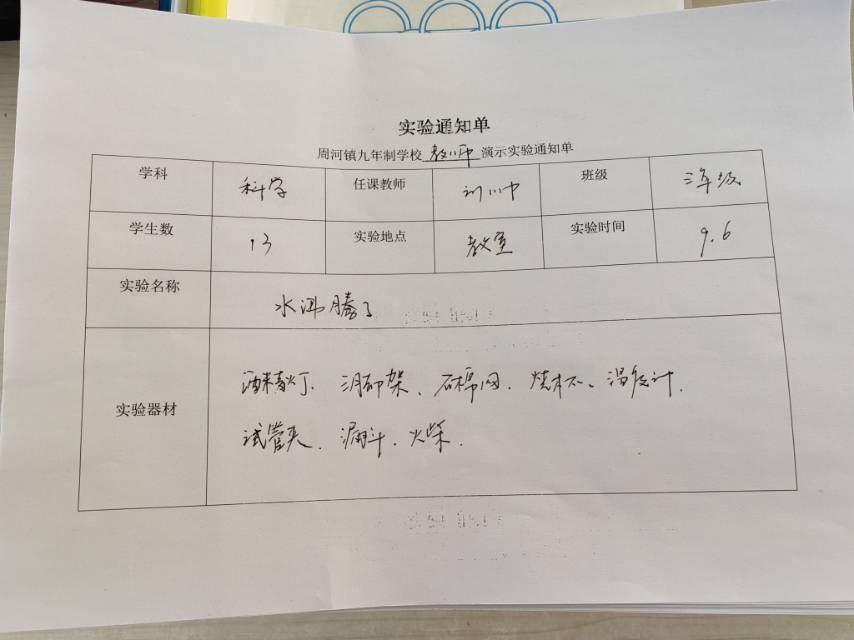 实验通知单
周河镇九年制学校 教师 演示实验通知单
学科 科学 任课教师 班级 三年级
学生数 13 实验地点 教室 实验时间 9.6
实验名称 水沸腾了
实验器材 酒精灯、三脚架、石棉网、烧杯、温度计、
试管夹、漏斗、火柴。